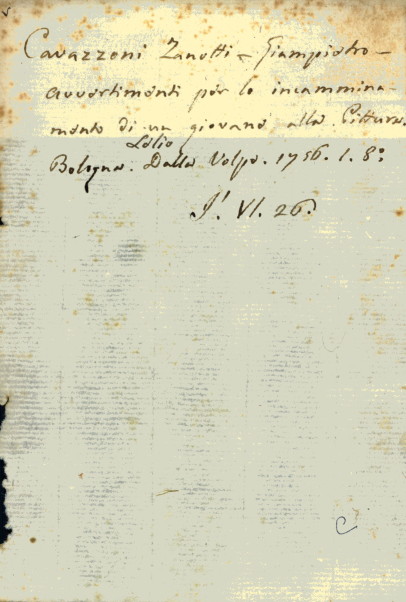 Cavazzoni Zanotti - Giampietro -
Avvertimenti per lo incammina-
mento di un giovane alla Pittura.
Lelio
Bologna. Dalla Volpe. 1756. 1. 8º
VI. 26.
C